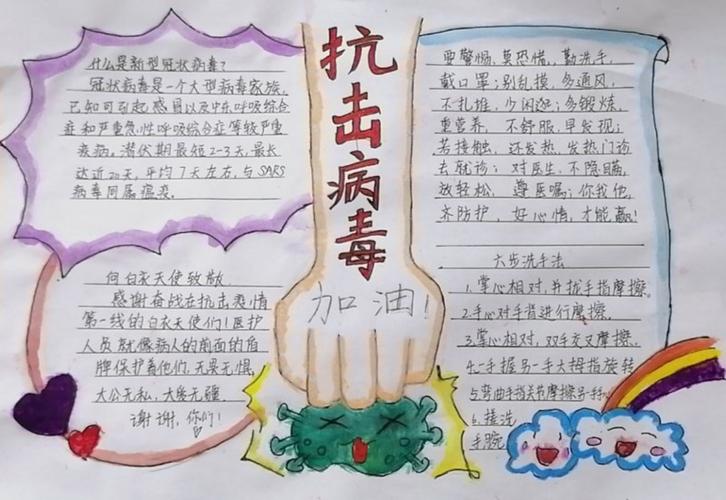 什么是新型冠状病毒?
冠状病毒是一个大型病毒家族,
已知可引起感冒以及中东呼吸综合
症和严重急性呼吸综合症等较严重
疾病。潜伏期最短2-3天,最长
达近20天,平均7天左右,与SARS
病毒同属瘟疫。
向白衣天使致敬
感谢奋战在抗击疫情
第一线的白衣天使们!医护
人员就像病人的前面的盾
牌保护着他们,无畏无惧,
大公无私,大爱无疆,
谢谢,你们!
抗击病毒
加油!
要警惕、莫恐慌,勤洗手,
戴口罩;别乱摸,多通风,
不扎推,少闲逛;多锻炼,
重营养,不舒服,早发现;
若接触,还发热,发热门诊
去就诊;对医生,不隐瞒,
放轻松,遵医嘱;你我他,
齐防护,好心情,才能赢!
六步洗手法
1.掌心相对,并拢手指摩擦。
2.手心对手背进行摩擦,
3.掌心相对,双手交叉摩擦.
4.一手握另一手大拇指旋转
5弯曲手指关节摩擦另一手心
6.搓洗
手腕